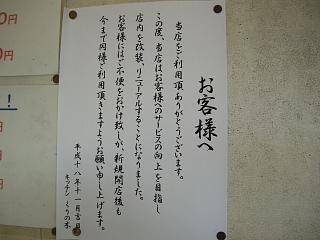 お客様へ
当店をご利用頂ありがとうございます。
この度、当店はお客様へのサービスの向上を目指し
店内を改装、リニューアルすることになりました。
お客様にはご不便をおかけ致しが、新規開店後も
今まで同様ご利用頂きますようお願い申し上げます。
平成十八年十一月吉日
キッチン くりの木
0円
0円
!
円
円